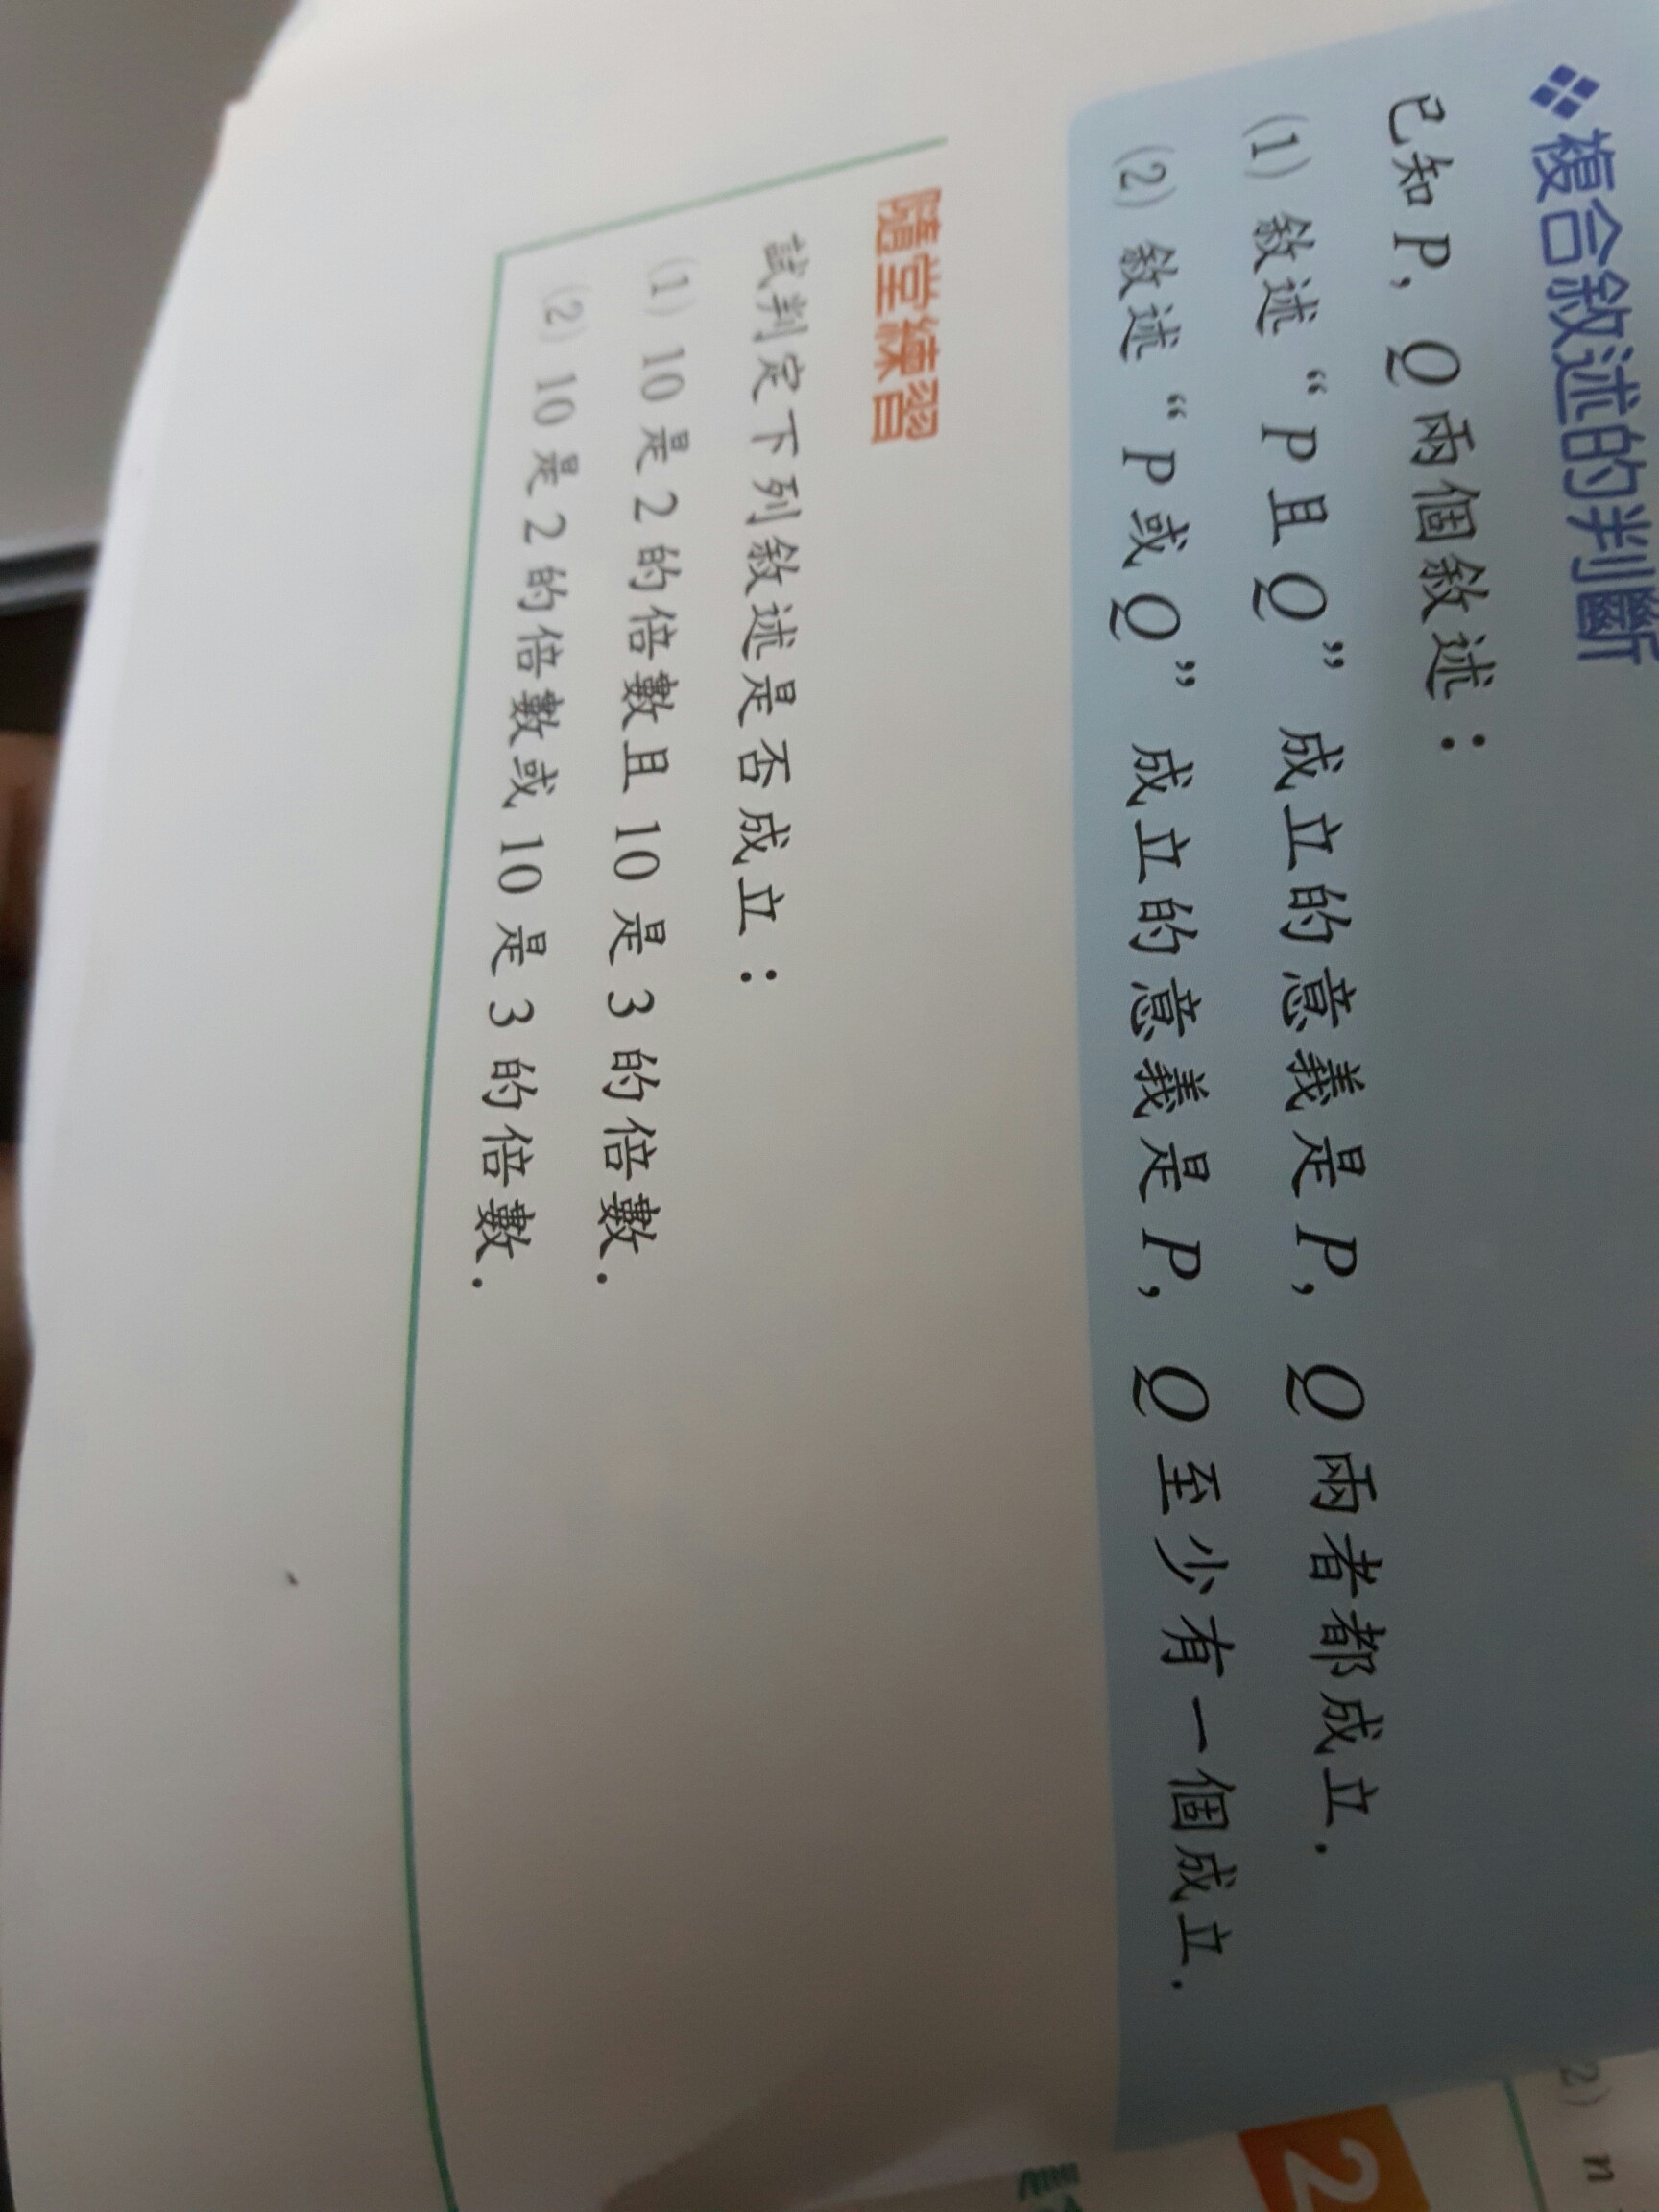 ❖複合敘述的判斷
已知 P, Q 兩個敘述：
(1) 敘述 “P 且 Q” 成立的意義是 P, Q 兩者都成立.
(2) 敘述 “P 或 Q” 成立的意義是 P, Q 至少有一個成立.
隨堂練習
試判定下列敘述是否成立：
(1) 10 是 2 的倍數且 10 是 3 的倍數.
(2) 10 是 2 的倍數或 10 是 3 的倍數.
2) n
2